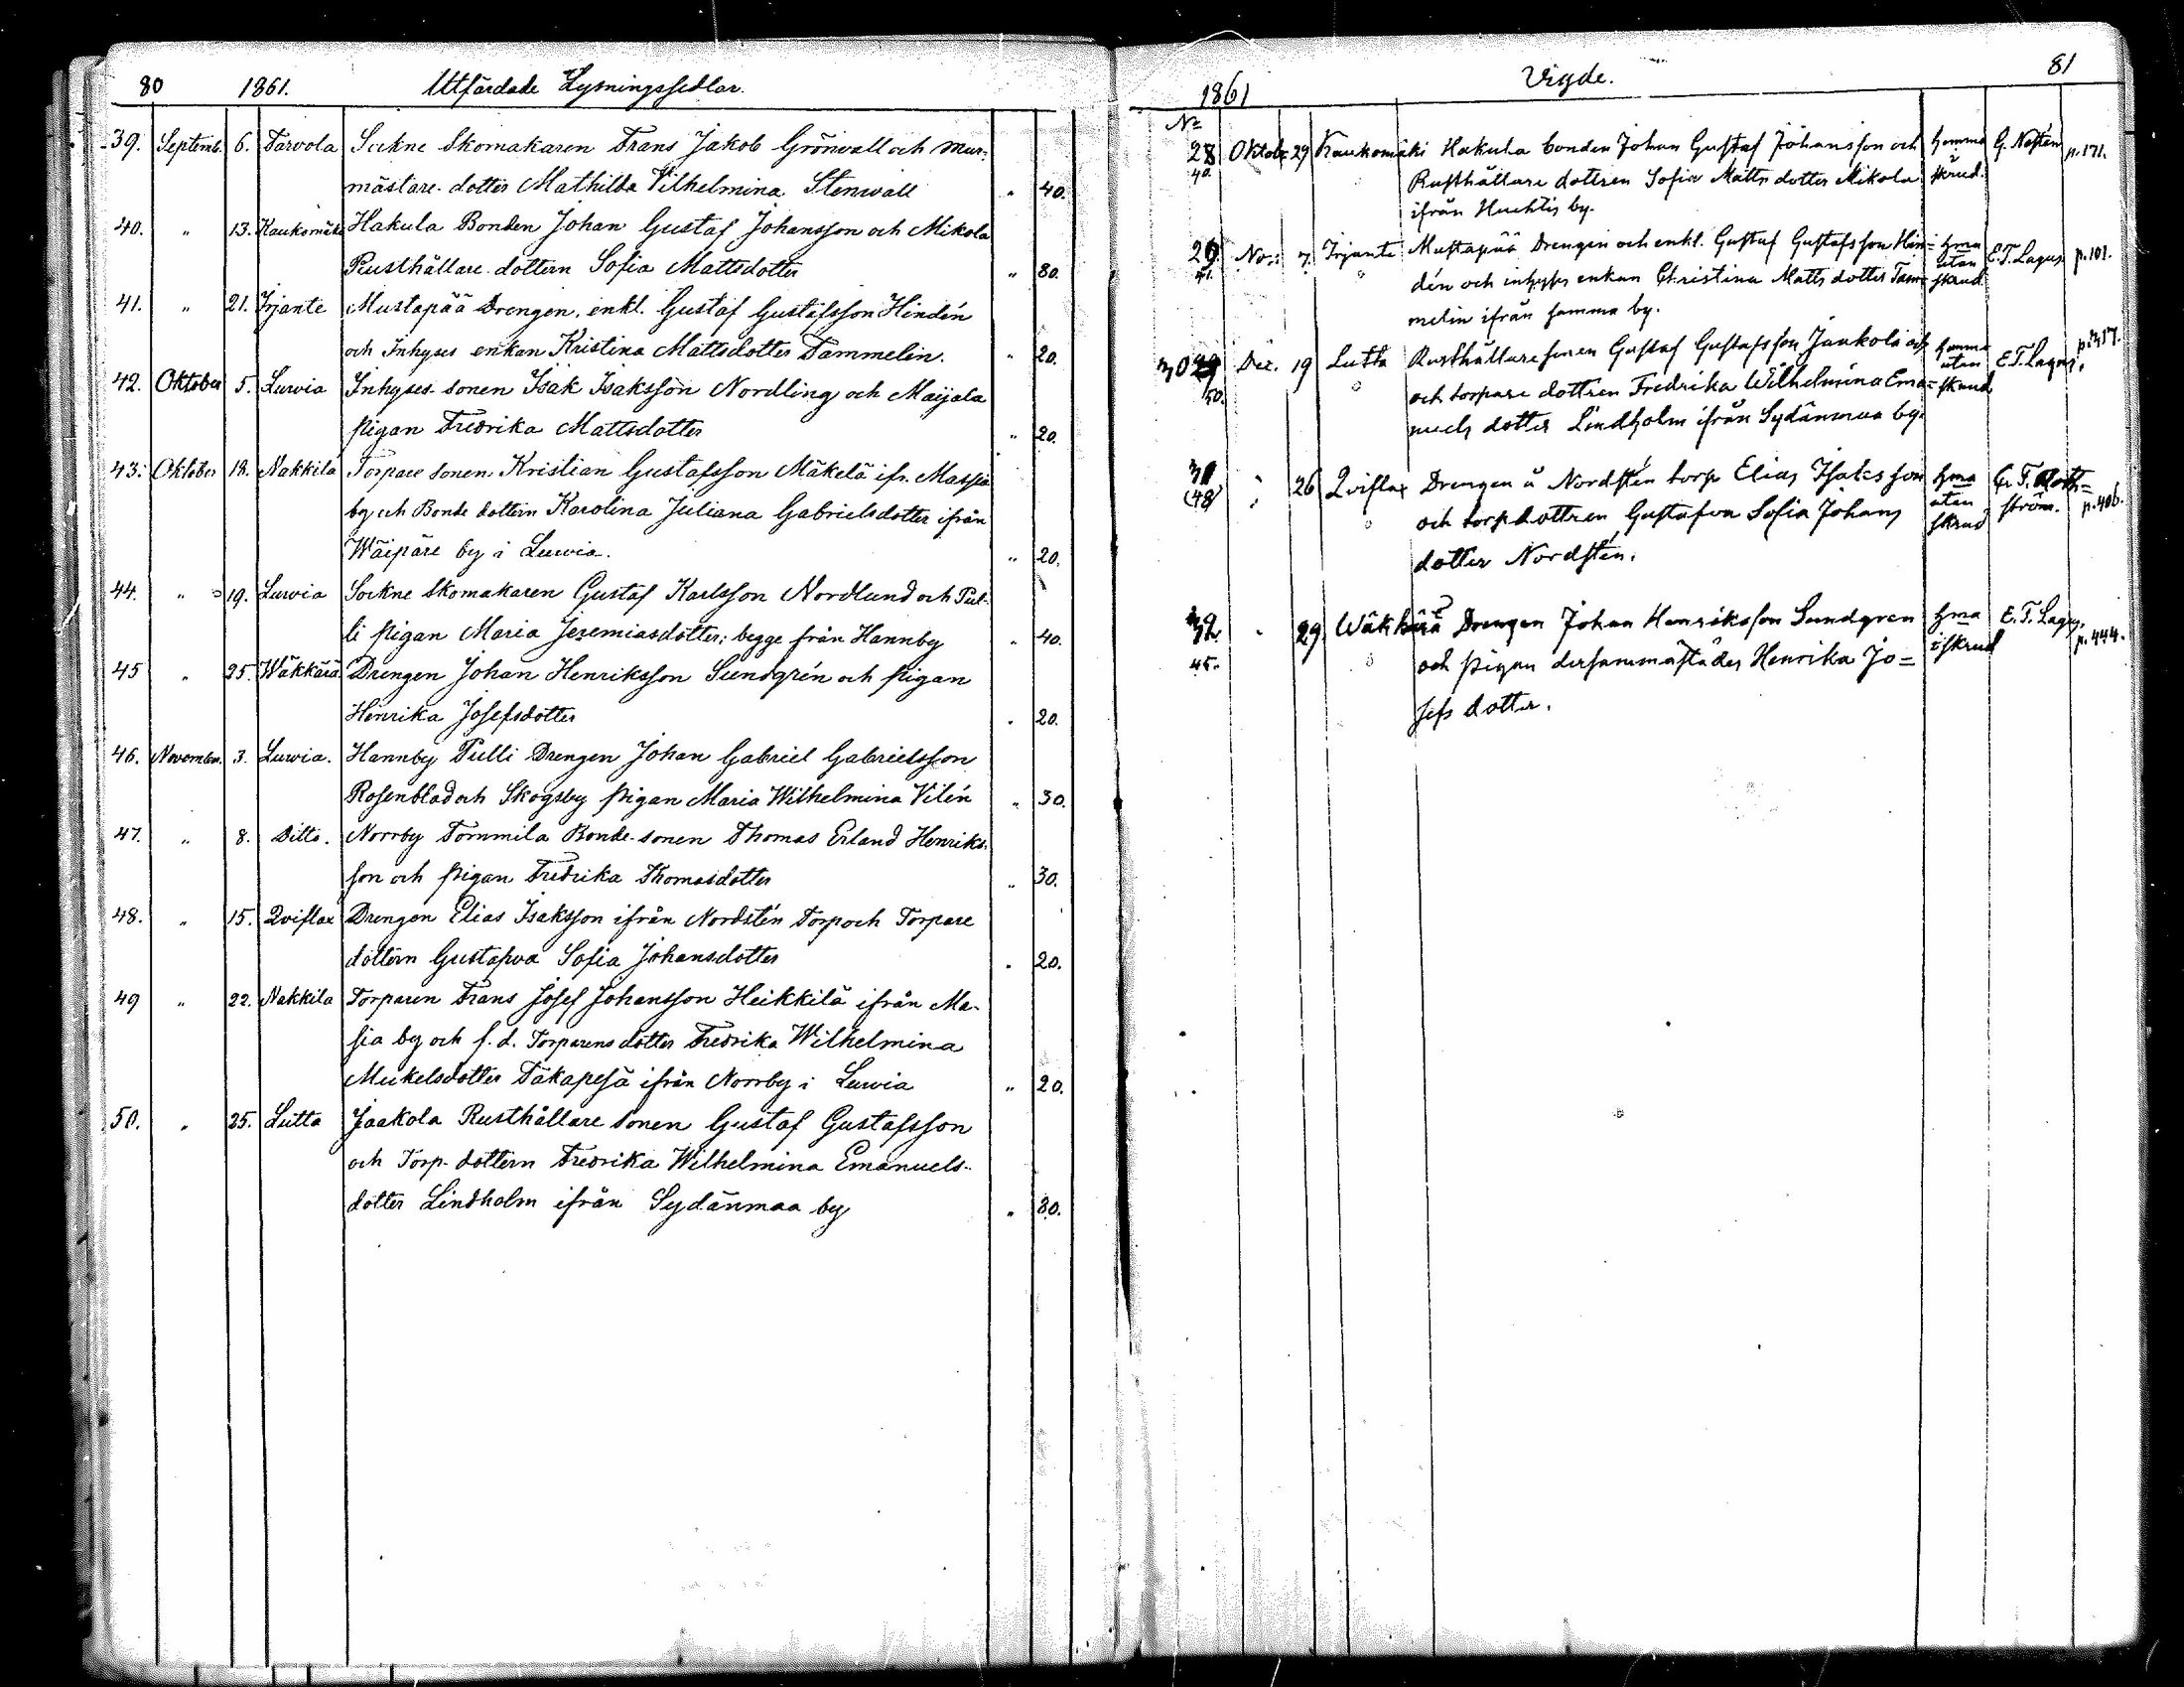 80 1861. Utfärdade Lysningssedlar.
39. Septemb. 6. Tarvola Sockne Skomakaren Frans Jakob Grönvall och Mur-
mästare dotter Mathilda Vilhelmina Stenwall " 40.
40. " 13. Kaukomäki Hakula Bonden Johan Gustaf Johansson och Mikola
Rusthållare dottern Sofia Mattsdotter " 80.
41. " 21. Irjante Mustapää Drengen, enkl. Gustaf Gustafsson Hindén
och Inhyses enkan Kristina Mattsdotter Tammelin. " 20.
42. Oktober 5. Luvia Inhyses sonen Isak Isaksson Nordling och Maijala
pigan Fredrika Mattsdotter " 20.
43. Oktober 18. Nakkila Torpare sonen Kristian Gustafsson Mäkelä ifr. Massia
by och Bonde dottern Karolina Juliana Gabrielsdotter ifrån
Wäipäre by i Luvia. " 20.
44. " 19. Luvia Sockne skomakaren Gustaf Karlsson Nordlund och Pul-
li pigan Maria Jeremiasdotter; begge från Hannby " 40.
45 " 25. Wäkkärä Drengen Johan Henriksson Sundgrén och pigan
Henrika Josefsdotter " 20.
46. November. 3. Luvia. Hannby Pulli Drengen Johan Gabriel Gabrielsson
Rosenblad och Skogsby pigan Maria Wilhelmina Vilén " 30.
47. " 8. Ditto. Norrby Tommila Bonde-sonen Thomas Erland Henriks-
son och pigan Fredrika Thomasdotter " 30.
48. " 15. Qviflax Drengen Elias Isaksson ifrån Nordstén Torp och Torpare
dottern Gustafva Sofia Johansdotter " 20.
49 " 22. Nakkila Torparen Frans Josef Johansson Heikkilä ifrån Ma-
sia by och f. d. Torparens dotter Fredrika Wilhelmina
Mickelsdotter Takapesä ifrån Norrby i Luvia " 20.
50. " 25. Lutta Jaakola Rusthållare sonen Gustaf Gustafsson
och Torp- dottern Fredrika Wilhelmina Emanuels-
dotter Lindholm ifrån Sydänmaa by " 80.
1861 Vigde. 81
No
28 Oktob. 29 Kaukomäki Hakula bonden Johan Gustaf Johansson och hemma G. Nastén p. 171.
40. Rusthållare dottren Sofia Matts dotter Mikola skrud.
ifrån Huchtis by.
29 Nov: 7. Irjante Mustapää Drengen och enkl. Gustaf Gustafsson Hin- hma utan E. T. Lagus p. 101.
41. dén och inhyses enkan Christina Matts dotter Tam- skrud
melin ifrån samma by.
30 Dec. 19 Lutta Rusthållaresonen Gustaf Gustafsson Jaakola och hemma utan E. T. Lagus.
50. och torpare dottren Fredrika Wilhelmina Ema- skrud
nuels dotter Lindholm ifrån Sydänmaa by.
31 " 26 Qviflax Drengen å Nordstén torp Elias Isaksson hma utan
(48) och torpdottren Gustafva Sofia Johans skrud ström. p. 406.
dotter Nordstén.
32. " 29 Wäkkärä Drengen Johan Henriksson Sundgren hma E. T. Lagus. p. 444.
45. och pigan dersammastädes Henrika Jo- i skrud
sefs dotter.